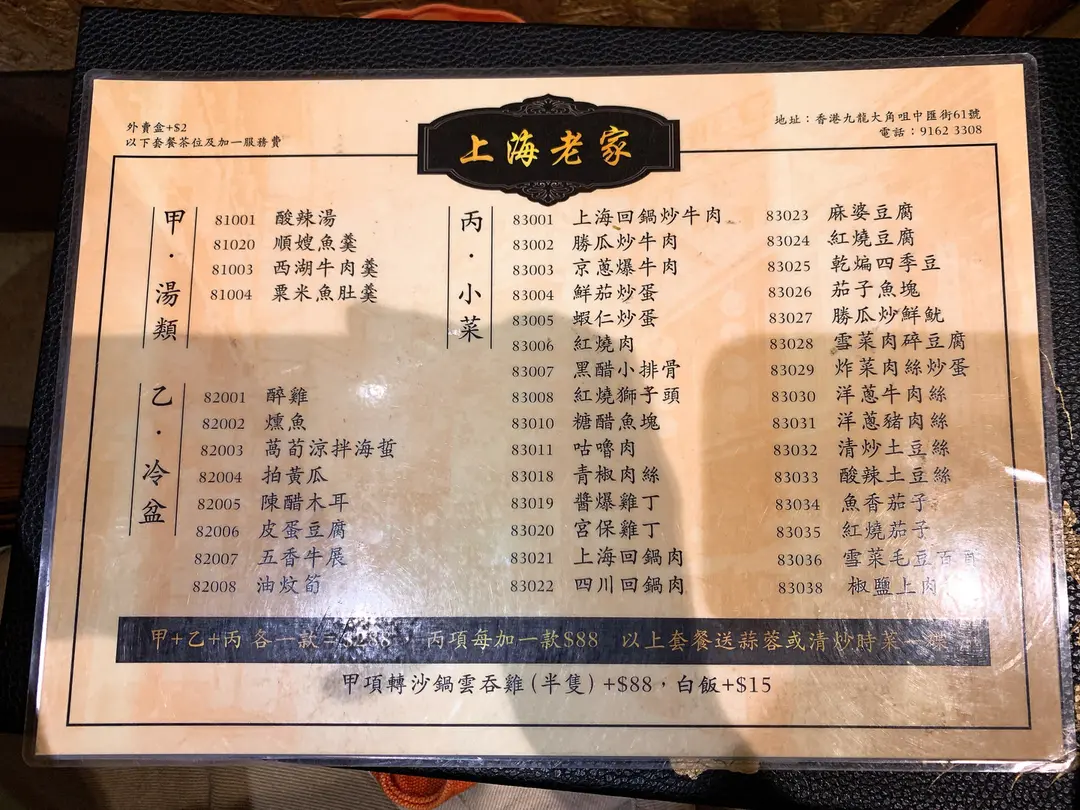 外賣盒+$2
以下套餐茶位及加一服務費
上海老家
地址：香港九龍大角咀中匯街61號
電話：9162 3308
甲·湯類
81001 酸辣湯
81020 順嫂魚羹
81003 西湖牛肉羹
81004 粟米魚肚羹
乙·冷盆
82001 醉雞
82002 燻魚
82003 萵荀涼拌海蜇
82004 拍黃瓜
82005 陳醋木耳
82006 皮蛋豆腐
82007 五香牛展
82008 油炆筍
丙·小菜
83001 上海回鍋炒牛肉
83002 勝瓜炒牛肉
83003 京蔥爆牛肉
83004 鮮茄炒蛋
83005 蝦仁炒蛋
83006 紅燒肉
83007 黑醋小排骨
83008 紅燒獅子頭
83010 糖醋魚塊
83011 咕嚕肉
83018 青椒肉絲
83019 醬爆雞丁
83020 宮保雞丁
83021 上海回鍋肉
83022 四川回鍋肉
83023 麻婆豆腐
83024 紅燒豆腐
83025 乾煸四季豆
83026 茄子魚塊
83027 勝瓜炒鮮魷
83028 雪菜肉碎豆腐
83029 炸菜肉絲炒蛋
83030 洋蔥牛肉絲
83031 洋蔥豬肉絲
83032 清炒土豆絲
83033 酸辣土豆絲
83034 魚香茄子
83035 紅燒茄子
83036 雪菜毛豆百頁
83038 椒鹽上肉
甲+乙+丙 各一款=， 丙項每加一款$88 以上套餐送蒜蓉或清炒時菜一碟
甲項轉沙鍋雲吞雞(半隻)+$88，白飯+$15